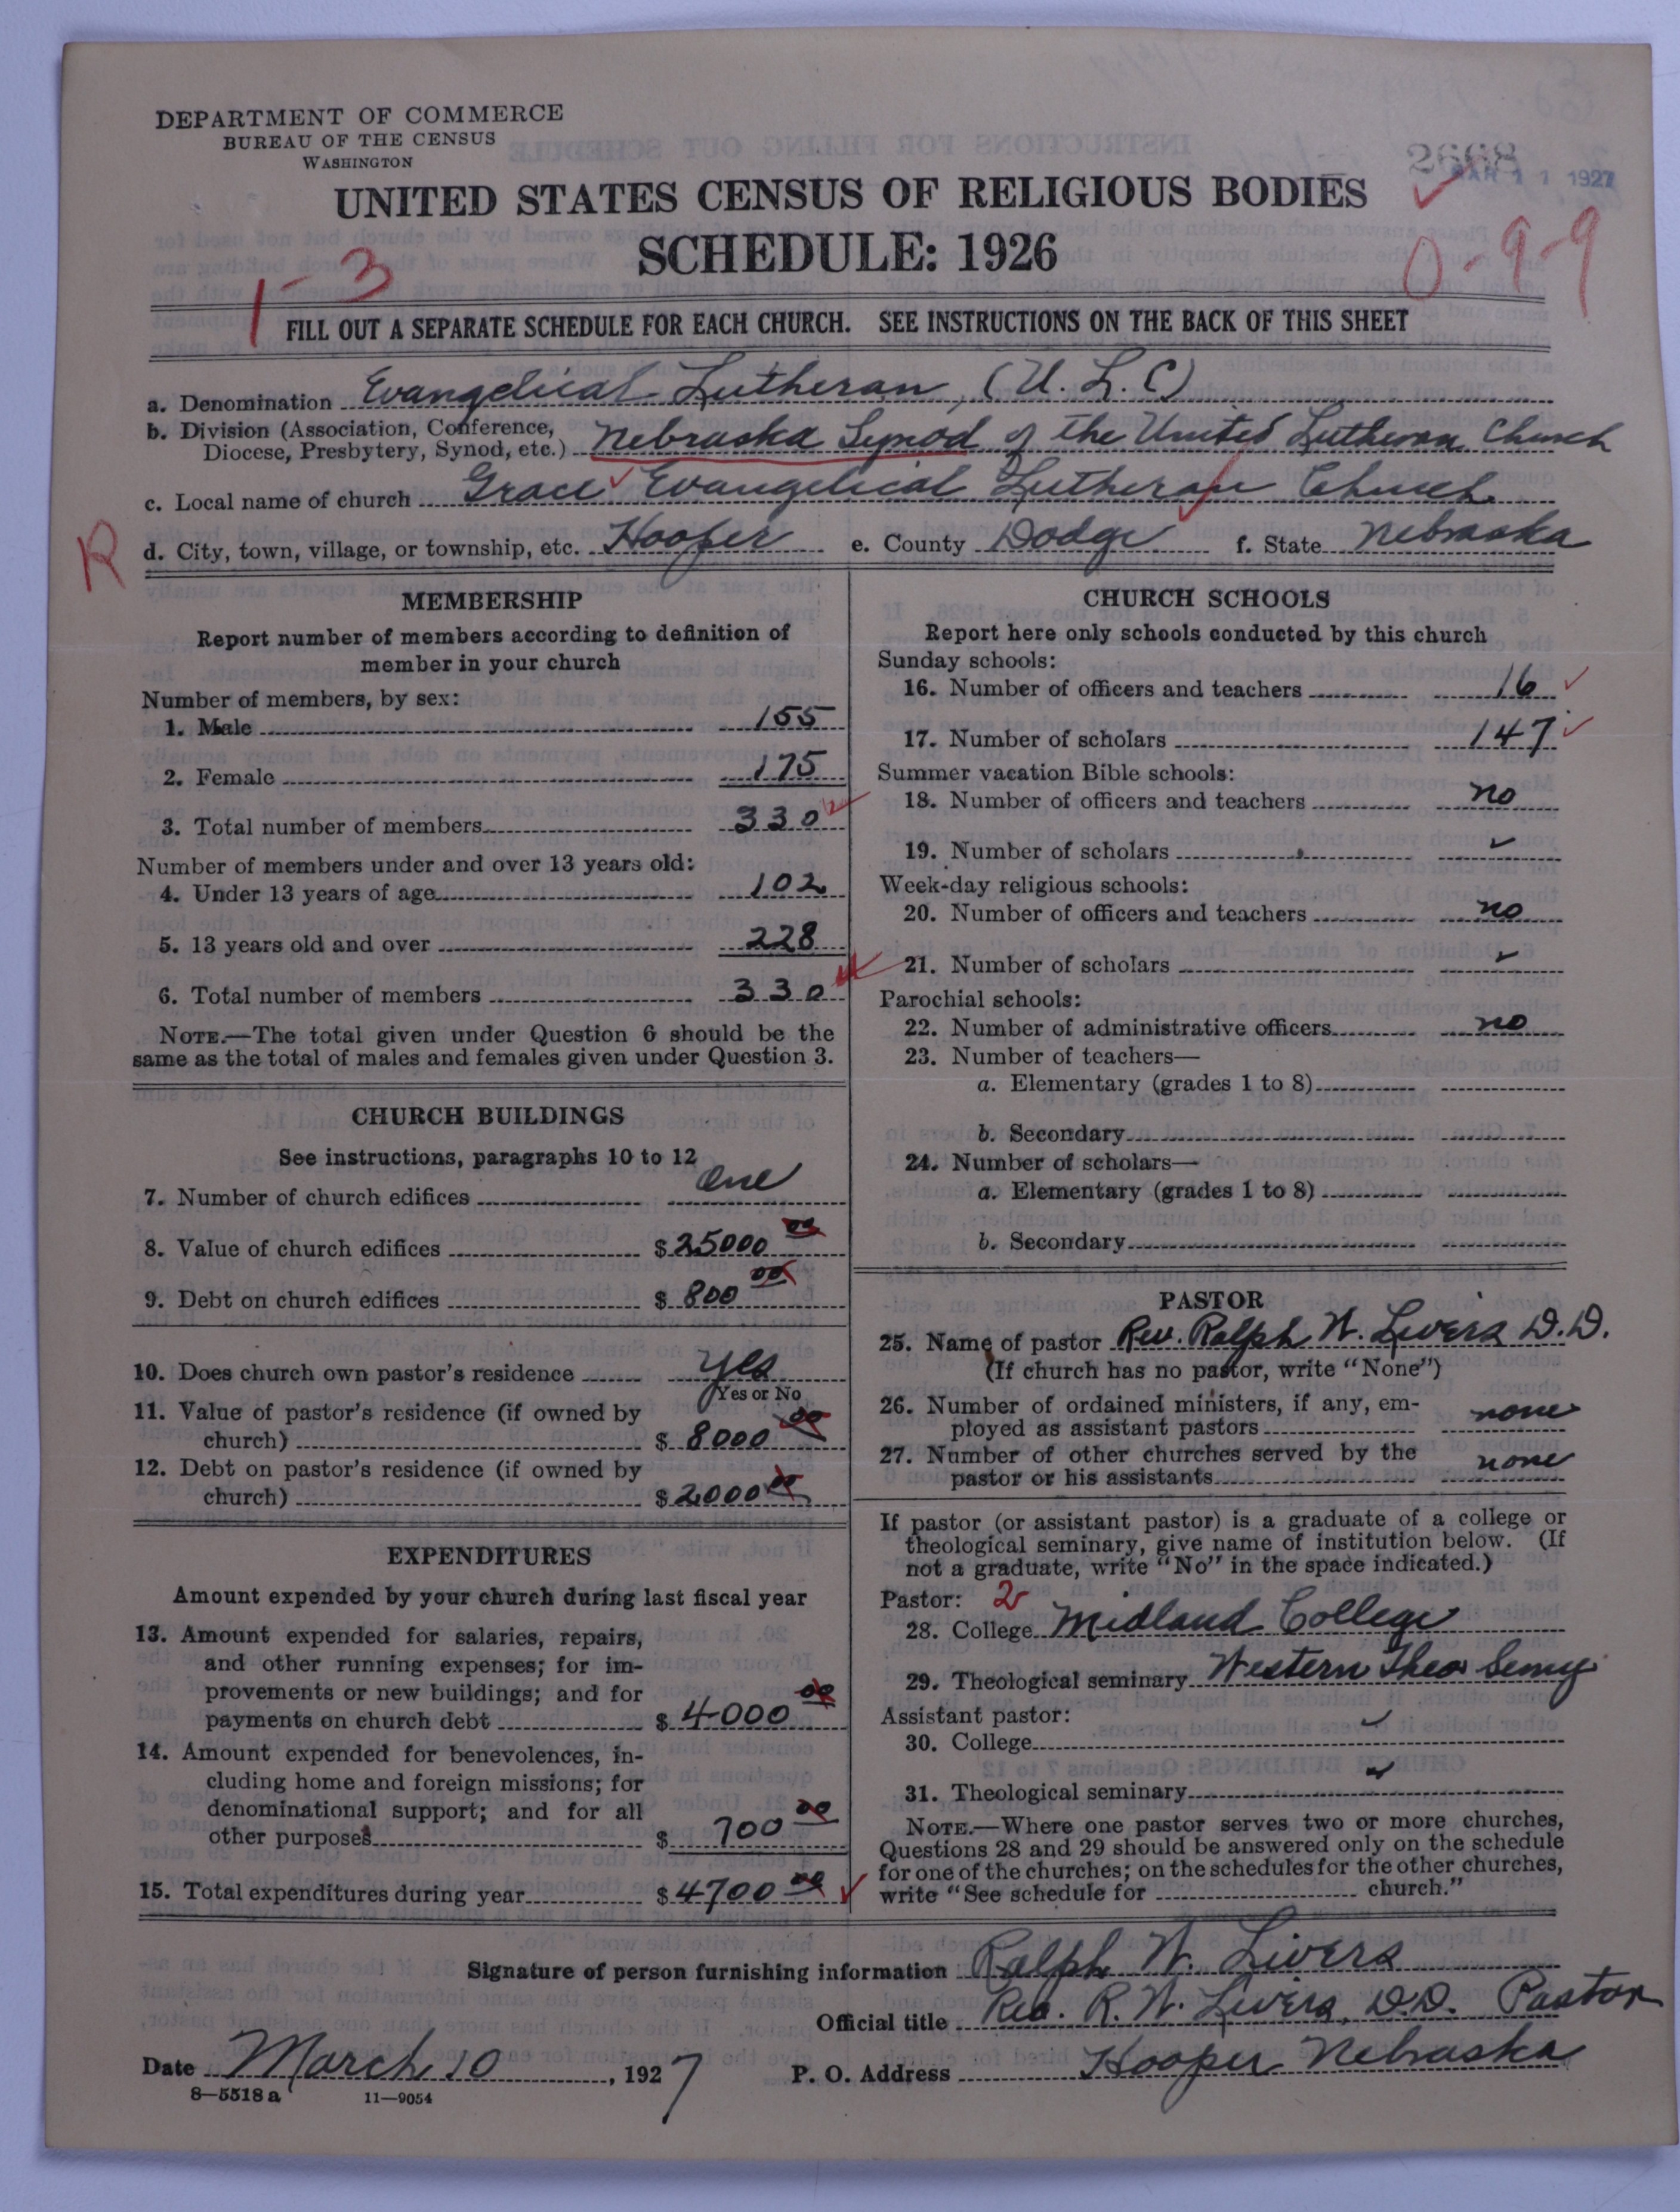 DEPARTMENT OF COMMERCE
BUREAU OF THE CENSUS
WASHINGTON
2668
MAR 11 1927
UNITED STATES CENSUS OF RELIGIOUS BODIES
SCHEDULE: 1926
1-3
0-9-9
FILL OUT A SEPARATE SCHEDULE FOR EACH CHURCH. SEE INSTRUCTIONS ON THE BACK OF THIS SHEET
a. Denomination Evangelical Lutheran, (U. L. C)
b. Division (Association, Conference, Diocese, Presbytery, Synod, etc.) Nebraska Synod of the United Lutheran Church
c. Local name of church Grace Evangelical Lutheran Church
R
d. City, town, village, or township, etc. Hooper e. County Dodge f. State Nebraska
MEMBERSHIP
Report number of members according to definition of
member in your church
Number of members, by sex:
1. Male 155
2. Female 175
3. Total number of members 330
Number of members under and over 13 years old:
4. Under 13 years of age 102
5. 13 years old and over 228
6. Total number of members 330
NOTE.—The total given under Question 6 should be the
same as the total of males and females given under Question 3.
CHURCH BUILDINGS
See instructions, paragraphs 10 to 12
7. Number of church edifices One
8. Value of church edifices $ 25000 00
9. Debt on church edifices $ 800 00
10. Does church own pastor's residence yes
(Yes or No
11. Value of pastor's residence (if owned by
church) $ 8000 00
12. Debt on pastor's residence (if owned by
church) $ 2000 00
EXPENDITURES
Amount expended by your church during last fiscal year
13. Amount expended for salaries, repairs,
and other running expenses; for im-
provements or new buildings; and for
payments on church debt $ 4000 00
14. Amount expended for benevolences, in-
cluding home and foreign missions; for
denominational support; and for all
other purposes $ 700 00
15. Total expenditures during year $ 4700 00
CHURCH SCHOOLS
Report here only schools conducted by this church
Sunday schools:
16. Number of officers and teachers 16
17. Number of scholars 147
Summer vacation Bible schools:
18. Number of officers and teachers no
19. Number of scholars
Week-day religious schools:
20. Number of officers and teachers no
21. Number of scholars
Parochial schools:
22. Number of administrative officers no
23. Number of teachers—
a. Elementary (grades 1 to 8)
b. Secondary
24. Number of scholars—
a. Elementary (grades 1 to 8)
b. Secondary
PASTOR
25. Name of pastor Rev. Ralph W. Livers D.D.
(If church has no pastor, write "None")
26. Number of ordained ministers, if any, em-
ployed as assistant pastors none
27. Number of other churches served by the
pastor or his assistants none
If pastor (or assistant pastor) is a graduate of a college or
theological seminary, give name of institution below. (If
not a graduate, write "No" in the space indicated.)
Pastor: 2
28. College Midland College
29. Theological seminary Western Theo Semy
Assistant pastor:
30. College
31. Theological seminary
NOTE.—Where one pastor serves two or more churches,
Questions 28 and 29 should be answered only on the schedule
for one of the churches; on the schedules for the other churches,
write "See schedule for church."
Signature of person furnishing information Ralph W. Livers
Official title Rev. R. W. Livers, D.D. Pastor
Date March 10, 1927 P. O. Address Hooper Nebraska
8—5518 a 11—9054